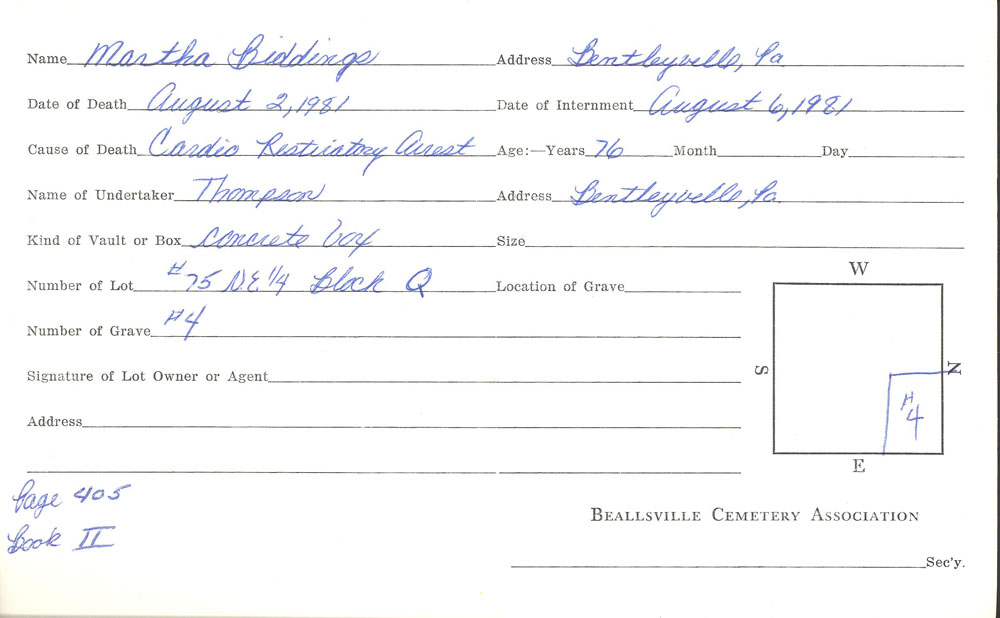 Name Martha Biddings Address Bentleyville, Pa.
Date of Death August 2, 1981 Date of Internment August 6, 1981
Cause of Death Cardio Restiratory Arrest Age:—Years 76 Month Day
Name of Undertaker Thompson Address Bentleyville, Pa.
Kind of Vault or Box Concrete box Size
W
Number of Lot #75 N.E. 1/4 Block Q Location of Grave
Number of Grave #4
S N
Signature of Lot Owner or Agent
#4
Address
E
Page 405
Beallsville Cemetery Association
Book II
Sec'y.